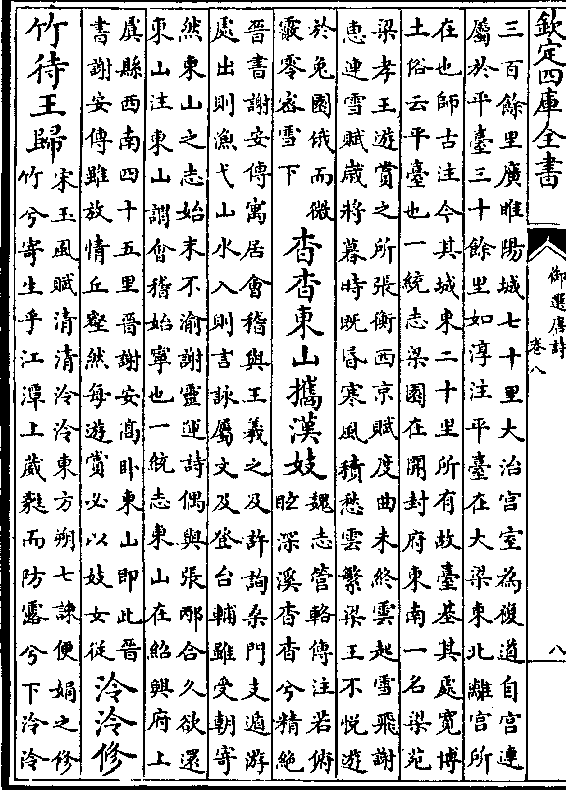 欽定四庫全書
御選唐詩
卷八
八
三百餘里廣睢陽城七十里大治宫室為複道自宫連
屬於平臺三十餘里如淳注平臺在大梁東北離宫所
在也師古注今其城東二十里所有故臺基其處寛博
土俗云平臺也一統志梁園在開封府東南一名梁苑
梁孝王遊賞之所張衡西京賦度曲未終雲起雪飛謝
惠連雪賦歲將暮時既昏寒風積愁雲繁梁王不悦遊
於兔園俄而微
霰零密雪下
杳杳東山攜漢妓
魏志管輅傳注若俯
眄深溪杳杳兮精絶
晉書謝安傳寓居會稽與王羲之及許詢桑門支遁游
處出則漁弋山水入則言詠屬文及登台輔雖受朝寄
然東山之志始末不渝謝靈運詩偶與張邴合久欲還
東山注東山謂會稽始寧也一統志東山在紹興府上
虞縣西南四十五里晉謝安高卧東山即此晉
書謝安傳雖放情丘壑然每遊賞必以妓女從
泠泠修
竹待王歸
宋玉風賦清清泠泠東方朔七諫便娟之修
竹兮寄生乎江潭上葳蕤而防露兮下泠泠